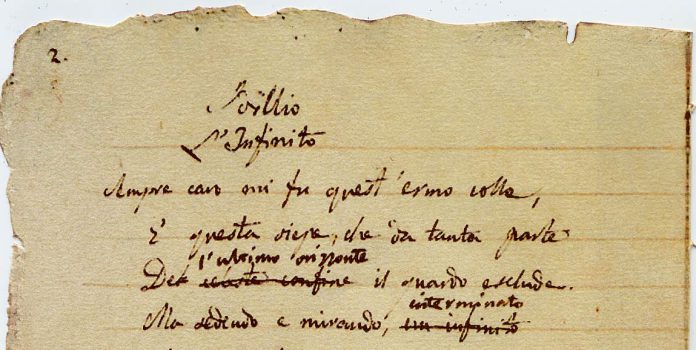 2.
Idillio
L'Infinito
Sempre caro mi fu quest'ermo colle,
E questa siepe, che da tanta parte
l'ultimo orizzonte
Del celeste confine il guardo esclude.
interminato
Ma sedendo e mirando, un infinito